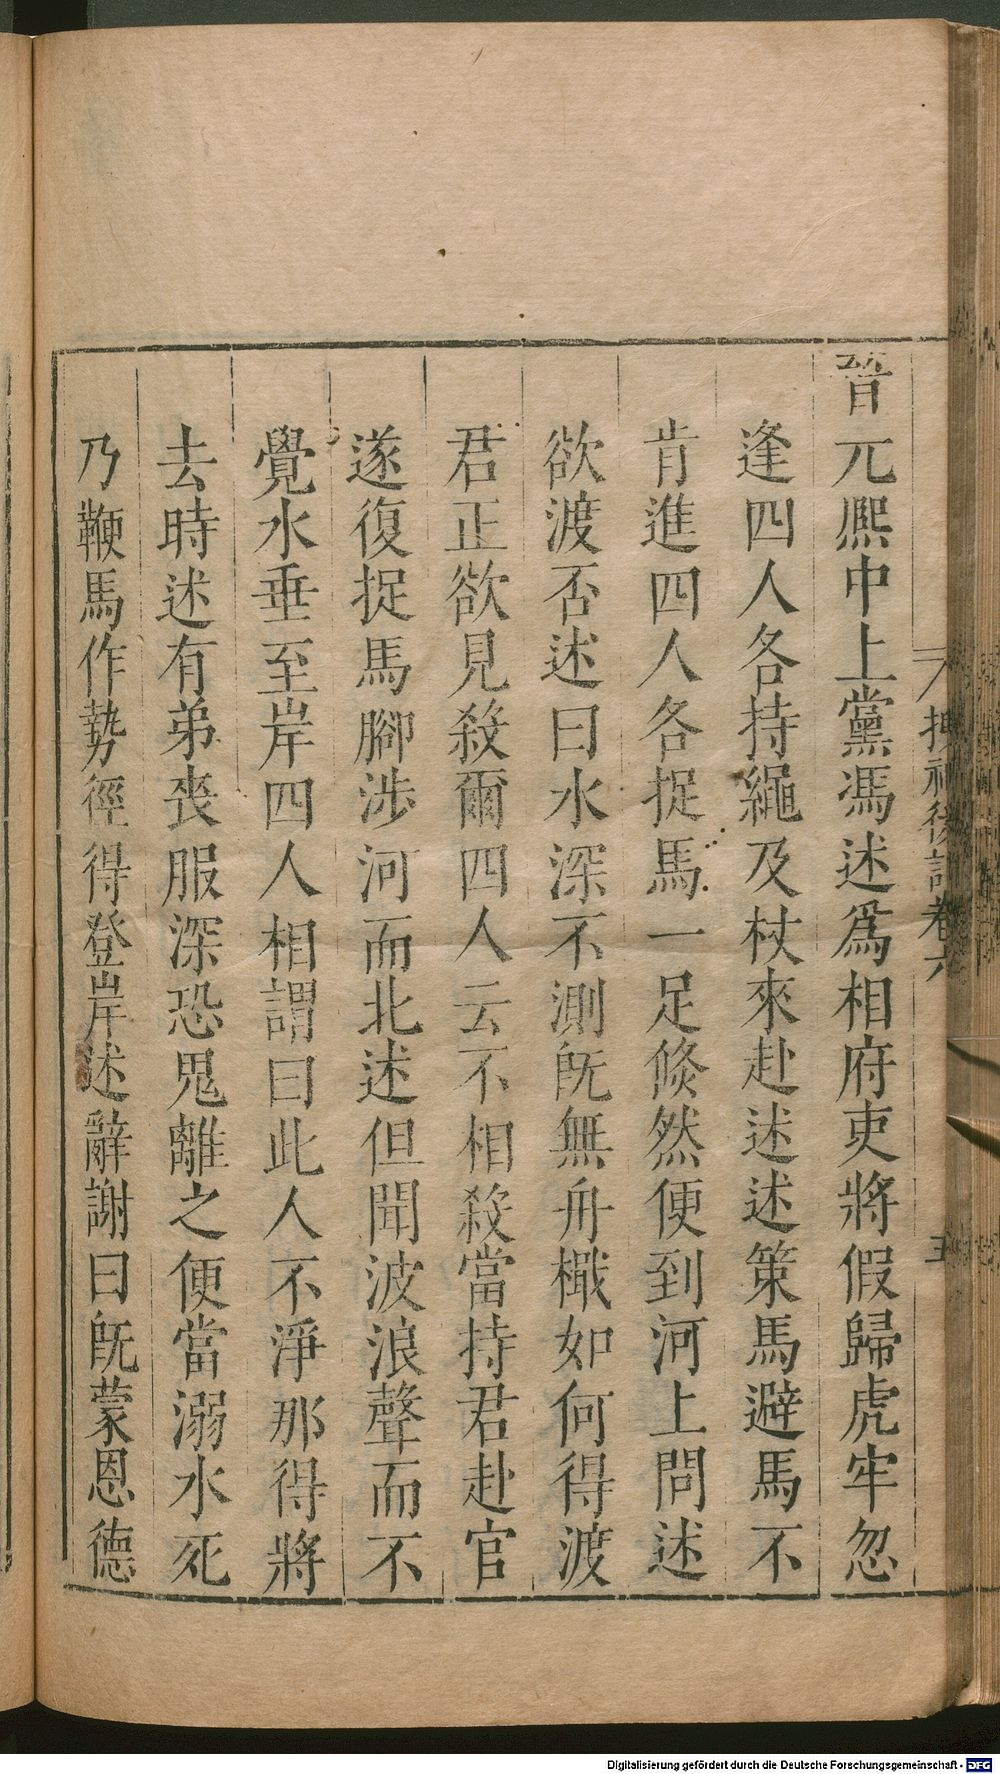 晉元熈中上黨馮述爲相府吏將假歸虎牢忽
逢四人各持繩及杖來赴述述策馬避馬不
肯進四人各捉馬一足倐然便到河上問述
欲渡否述曰水深不測旣無舟檝如何得渡
君正欲見殺爾四人云不相殺當持君赴官
遂復捉馬腳涉河而北述但聞波浪聲而不
覺水垂至岸四人相謂曰此人不淨那得將
去時述有弟喪服深恐鬼離之便當溺水死
乃鞭馬作勢徑得登岸述辭謝曰旣蒙恩德
搜神後記卷六
五
Digitalisierung gefördert durch die Deutsche Forschungsgemeinschaft - DFG